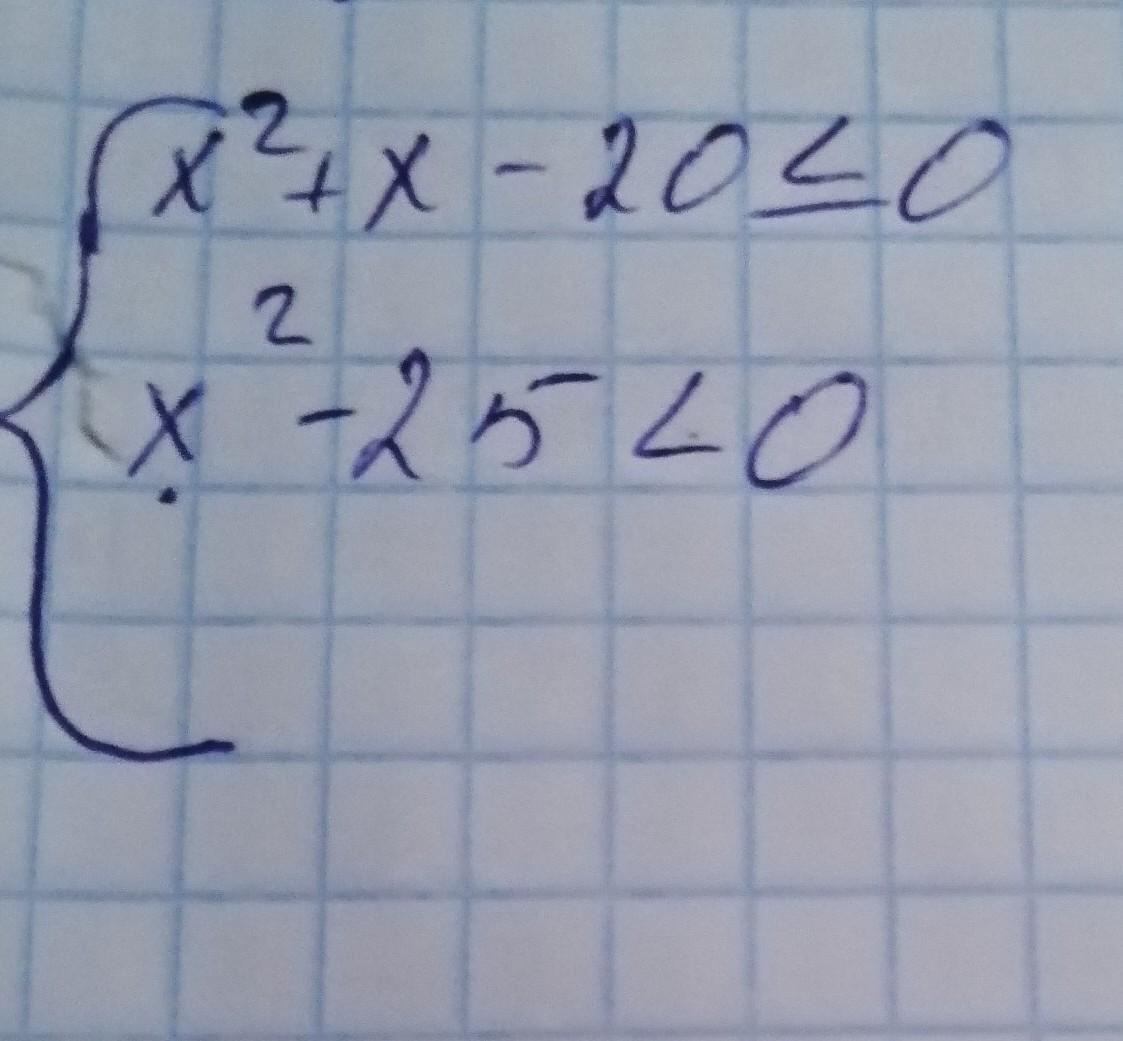 x² + x - 20 ≤ 0
x² - 25 < 0